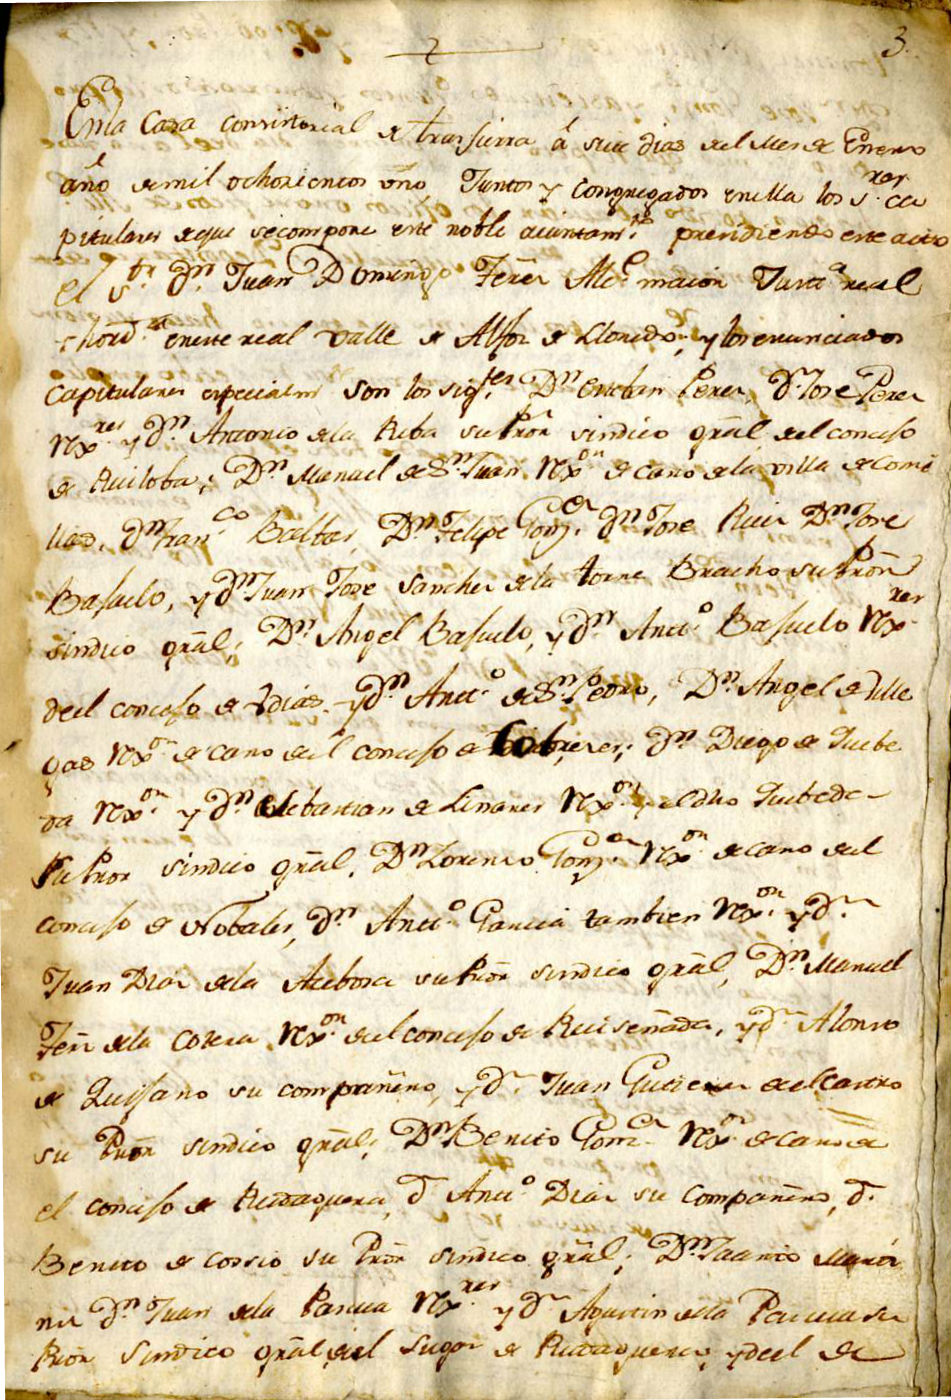 3
En la Casa consistorial de trassierra á siete dias del Mes de Enero
año de mil ochozientos vno Juntos y congregados en ella los s.res ca
pitulares de que se compone este noble aiuntam.to presidiendo este acto
el s.or dn. Juan Domingo Fern̄z Alc.e maior Justi.a real
hord.a en este real valle de Alfoz de Lloredo; y los enunciados
capitulares especialm.te son los sig.tes Dn Esteban Perez, dn Jose Perez
Rx.res y dn. Antonio de la Riba su Prōr sindico grāl del conzejo
de Ruiloba; Dn. Manuel de Sn. Juan Rx.or decano de la villa de Comi
llas, dn Fran.co Balbas, Dn Felipe Gonz.ez dn Jose Ruiz Dn Jose
Basuelo, y dn Juan Jose Sanchez de la torre Bracho su Prōr
sindico grāl; Dn. Angel Basuelo, y dn Ant.o Basuelo Rx.res
del conzejo de Vdias. y dn Ant.o de Sn. Pedro, Dn. Angel de Ville
gas Rx.or decano del conzejo de Cobreces; dn Diego de Quebe
da Rx.or y dn Sebastian de Linares Rx.or y el dho Quebeda
su Pror sindico grāl, Dn Lorenzo Gonz.ez Rx.or decano del
conzejo de Nobales, dn Ant.o Garcia tambien Rx.or y dn
Juan Diaz de la Acebosa su Prōr sindico grāl, Dn Manuel
Fern̄ de la Cotera Rx.or del conzejo de Ruiseñada, y dn Alonso
de Quijano su compañero, y dn Juan Gutierrez del Castro
su Prōr sindico grāl; Dn Benito Gonz.ez Rx.or decano de
el conzejo de Rudaguera, d. Ant.o Diaz su compañero, d.
Benito de Cossio su Prōr sindico grāl; Dn Juanto Marti
nez dn Juan de la Pascua Rx.res y dn Agustin de la Pascua su
Prōr Sindico grāl, del Lugar de Rudaguera, y del de